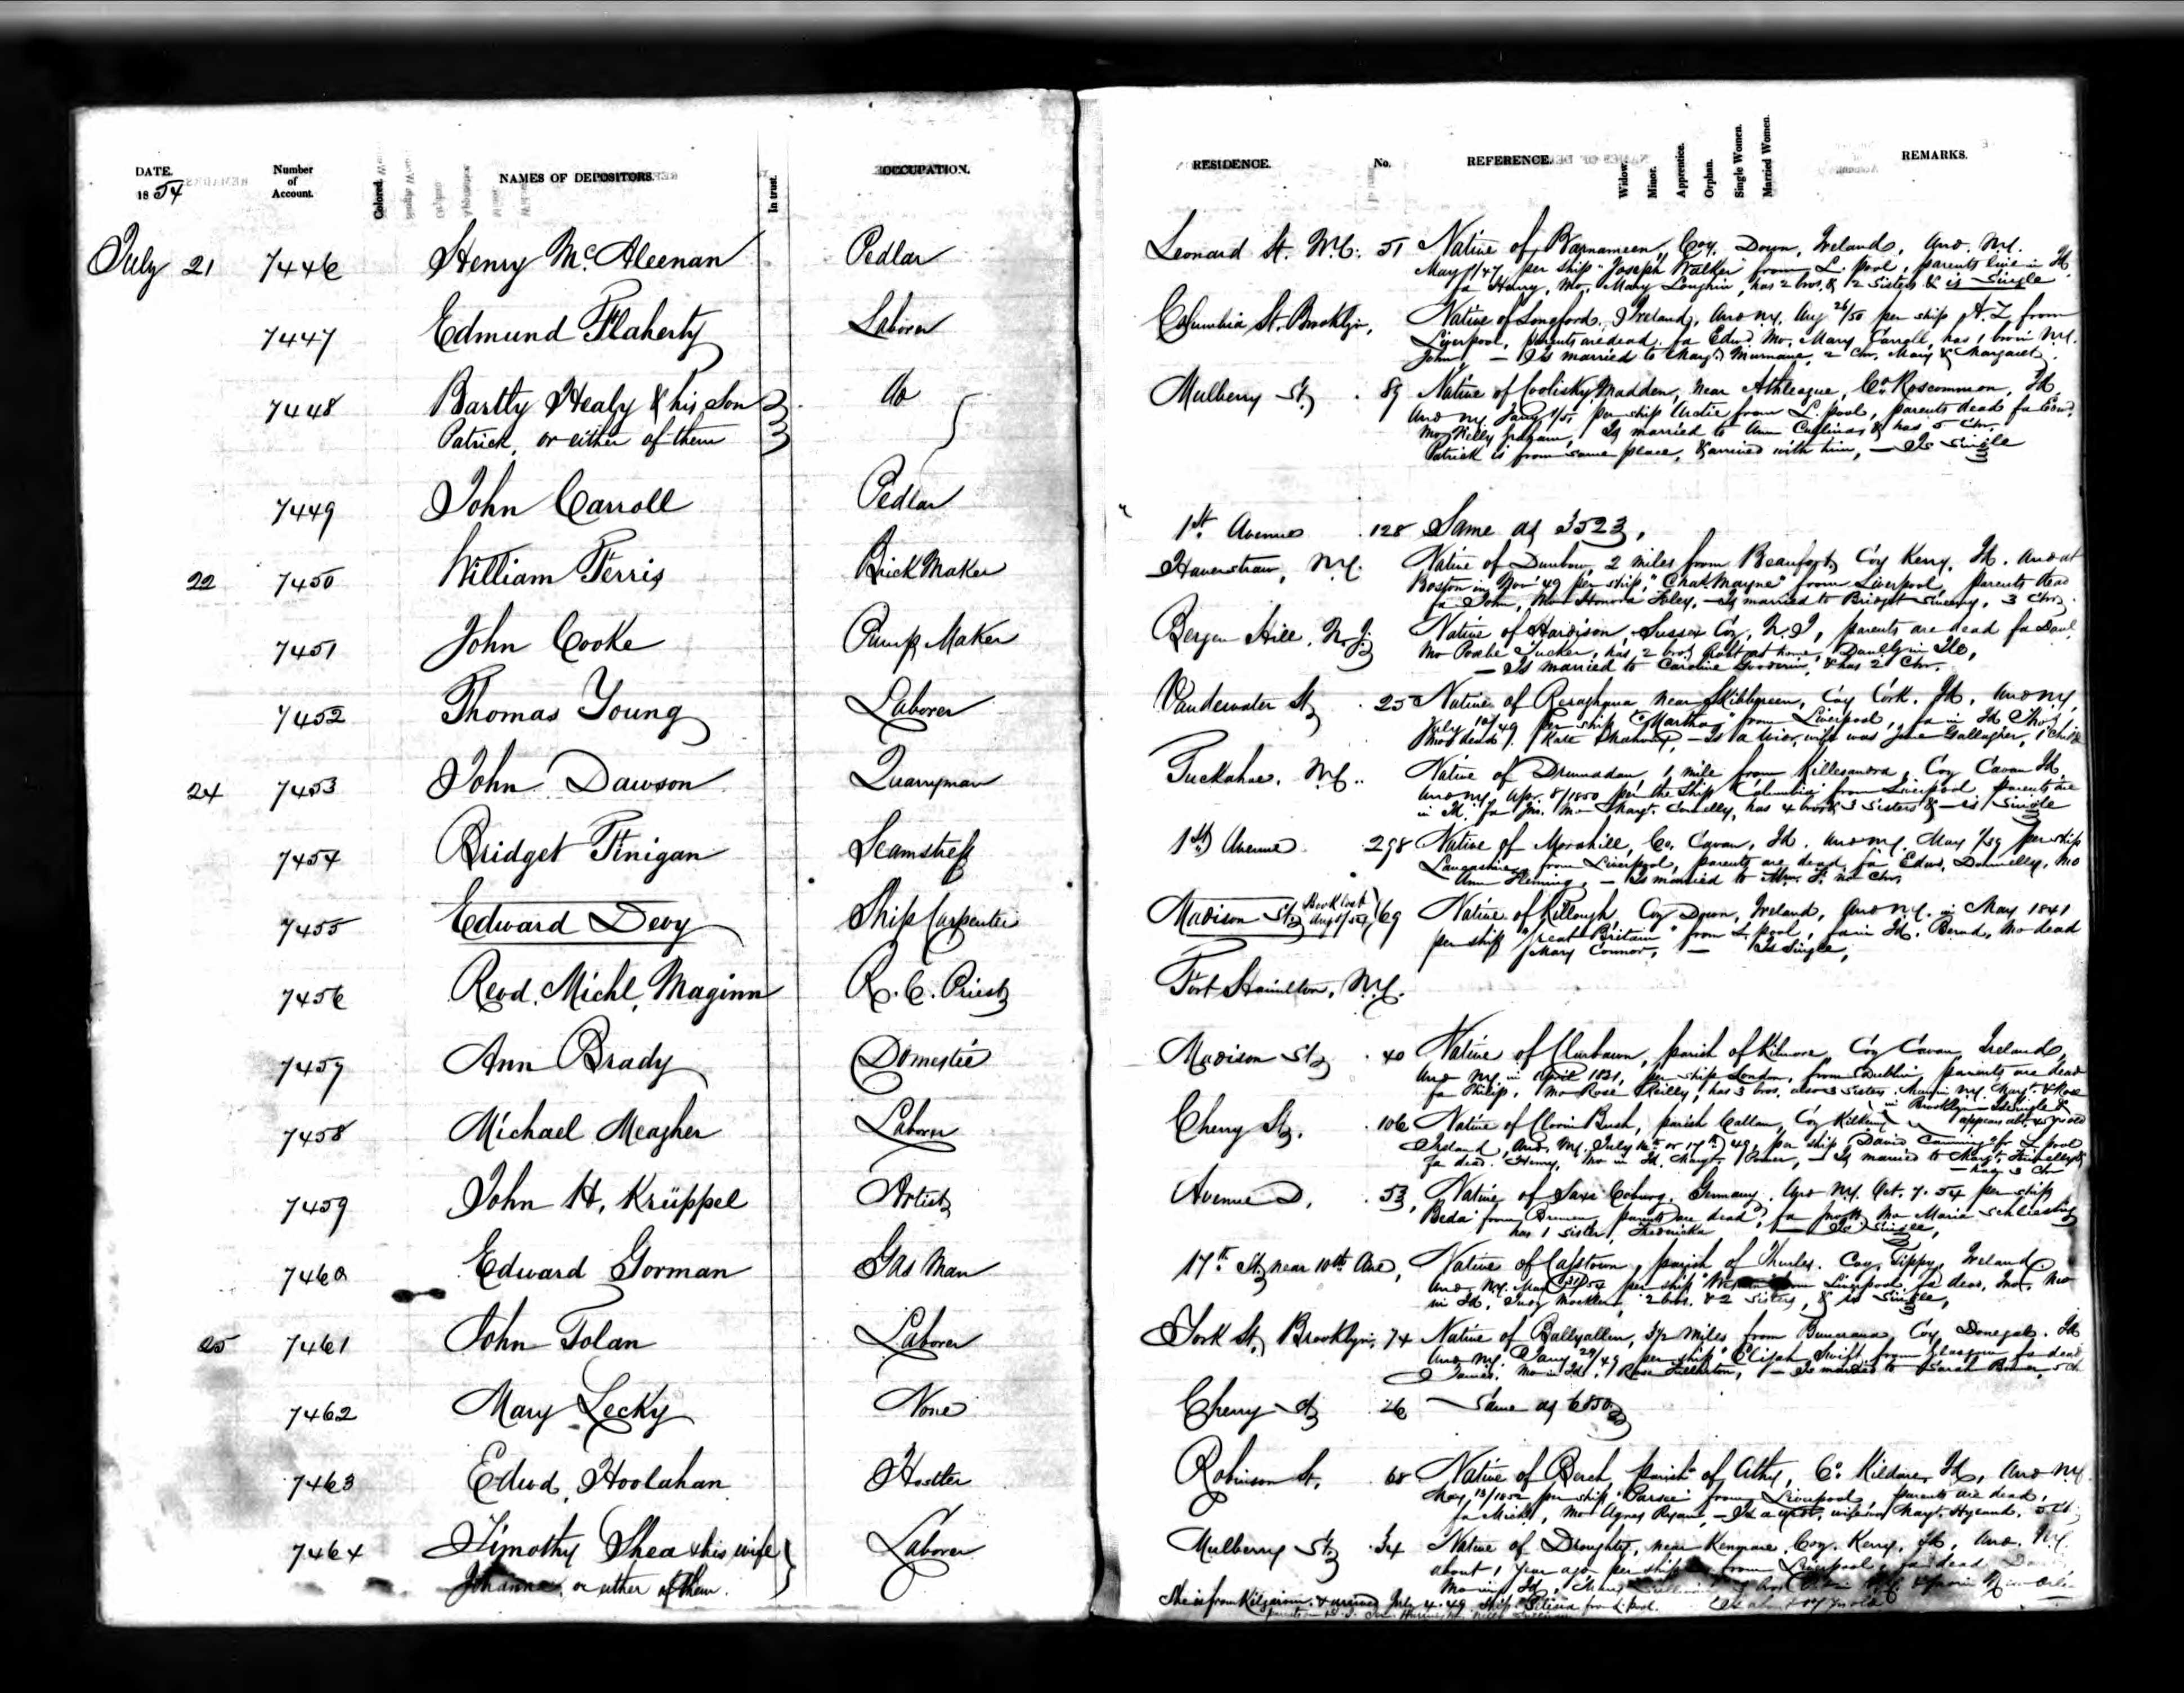 DATE. 1854 Number of Account. Colored. NAMES OF DEPOSITORS. In trust. OCCUPATION. RESIDENCE. No. REFERENCE. Widow. Minor. Apprentice. Orphan. Single Women. Married Women. REMARKS.
July 21 7446 Henry McAleenan Pedlar Leonard St. N.Y. 51 Native of Barnameen, Coy. Down, Ireland, Arrd. N.Y.
May 1/47, per ship "Joseph Walker" from L. pool, parents live in Id
fa Henry, Mo. Mary Loughin, has 2 bros. & 2 sisters & is Single
7447 Edmund Flaherty Laborer Columbia St. Brooklyn, Native of Longford, Ireland, Arrd N.Y. Aug 26/50 per ship A.Z from
Liverpool, parents are dead. fa Edwd. Mo. Mary Carroll, has 1 bro in N.Y.
John, — Is married to Margt. Murnane, 2 Chn. Mary & Margaret
7448 Bartly Healy & his Son Do Mulberry St 89 Native of Coolisky Madden, near Athleague, Co. Roscommon, Id.
Patrick, or either of them Arrd N.Y. Jany 1/51 per ship Arctic from L. pool, parents dead fa Edwd.
Mo Nelly Graham, Is married to Ann Cullinas & has 5 Chn.
Patrick is from same place, & arrived with him, — Is Single
7449 John Carroll Pedlar 1st Avenue 128 Same as 3523,
22 7450 William Ferris Brick Maker Haverstraw, N.Y. Native of Dunbow, 2 miles from Beaufort, Coy Kerry, Id. Arrd at
Boston in Nov '49 per ship, "Chas. Mayne" from Liverpool, parents dead
fa John, Mo Honora Foley, — Is married to Bridget Sweeny, 3 Chn.
7451 John Cooke Pump Maker Bergen Hill, N.J. Native of Hardison, Sussex Coy, N.J, parents are dead fa Danl.
Mo Phoebe Tucker, has 2 bros, Robt at home,
— Is married to Caroline & has 2 Chn.
7452 Thomas Young Laborer Vandewater St 25 Native of near Skibbgreen, Coy Cork, Id, Arrd N.Y,
July 10/49 per ship "Martha" from Liverpool, fa in Id. Thos,
Mo dead, Kate — Is a widr, wife was Jane Gallagher, 1 child
24 7453 John Dawson Quarryman Tuckahoe, N.Y. Native of Drumadan, 1 mile from Killesandra, Coy Cavan Id.
Arrd N.Y. Apr. 8/1850 per the ship "Columbia" from Liverpool parents are
in Id. fa Jas. Mo Margt. Connelly, has 4 bros & 3 sisters & — is Single
7454 Bridget Finigan Seamstress 1st Avenue 298 Native of Co. Cavan, Id. Arrd N.Y. May per ship
Lancashire from Liverpool, parents are dead, fa Edwd. Donnelly, Mo
Ann Fleming, — Is married to no Chn,
7455 Edward Devy Ship Carpenter Madison St Book lost 69 Native of Killough, Coy Down, Ireland, Arrd N.Y. in May 1841
per ship "Great Britain" from L. pool, fa in Id. Bernd. Mo dead
Mary Connor, — Is Single,
7456 Revd. Michl. Maginn R.C. Priest Fort Hamilton, N.Y.
7457 Ann Brady Domestic Madison St 40 Native of parish of Kilmore, Coy Cavan, Ireland,
Arrd N.Y. in April 1831, per ship London, from Dublin, parents are dead
fa Philip, Mo Rose Reilly, has 3 bros. also 3 sisters. Margt. & Rose
in Brooklyn — Is Single &
7458 Michael Meagher Laborer Cherry St. 106 Native of parish Callan, Coy Kilkeny appears abt. 45 yrs old
Ireland, Arrd. N.Y. July 16th or 17th /49, per ship "David Canning" fr L pool
fa dead. Henry, Mo in Id. Margt. Power, — Is married to Margt.
— has 3 Chn
7459 John H. Krüppel Artist Avenue D, 53, Native of Saxe Coburg, Germany. Arrd N.Y. Oct. 7. 54 per ship
"Beda" from Bremen parents are dead, Mo Maria
has 1 sister, Frederika — Is Single,
7460 Edward Gorman Gas Man 17th St near 10th Ave, Native of Casstown, parish of Thurles. Coy. Tippy, Ireland
Arrd N.Y. May 31/54 per ship from Liverpool, fa dead,
in Id, Judy 2 bros. & 2 sisters, & is Single,
25 7461 John Tolan Laborer York St, Brooklyn, 74 Native of Ballyallen, 3½ miles from Buncrana, Coy, Donegal. Id
Arrd N.Y. Jany 29/49 per ship "Elijah Swift" from Glasgow fa dead
James, Mo in Id, Rose Fullerton, — Is married to Sarah 5 ch
7462 Mary Lecky None Cherry St 26 Same as 6850
7463 Edwd. Hoolahan Hostler Robinson St. 68 Native of Berch, parish of Athy, Co. Kildare, Id, Arrd N.Y.
May 13/1852 per ship "Parsee" from Liverpool parents are dead,
fa Michl, Mo Agnes Ryan, — Is a widr, wife was Margt. Hyland,
7464 Timothy Shea & his wife Laborer Mulberry St 34 Native of Droughty, near Kenmare, Coy. Kerry, Id, Arrd. N.Y.
Johanna, or either of them. about 1 year ago per ship from Liverpool, fa dead,
Mo in Id,
She is from Kilgarvin & arrived July 4. 49 ship from L. pool.